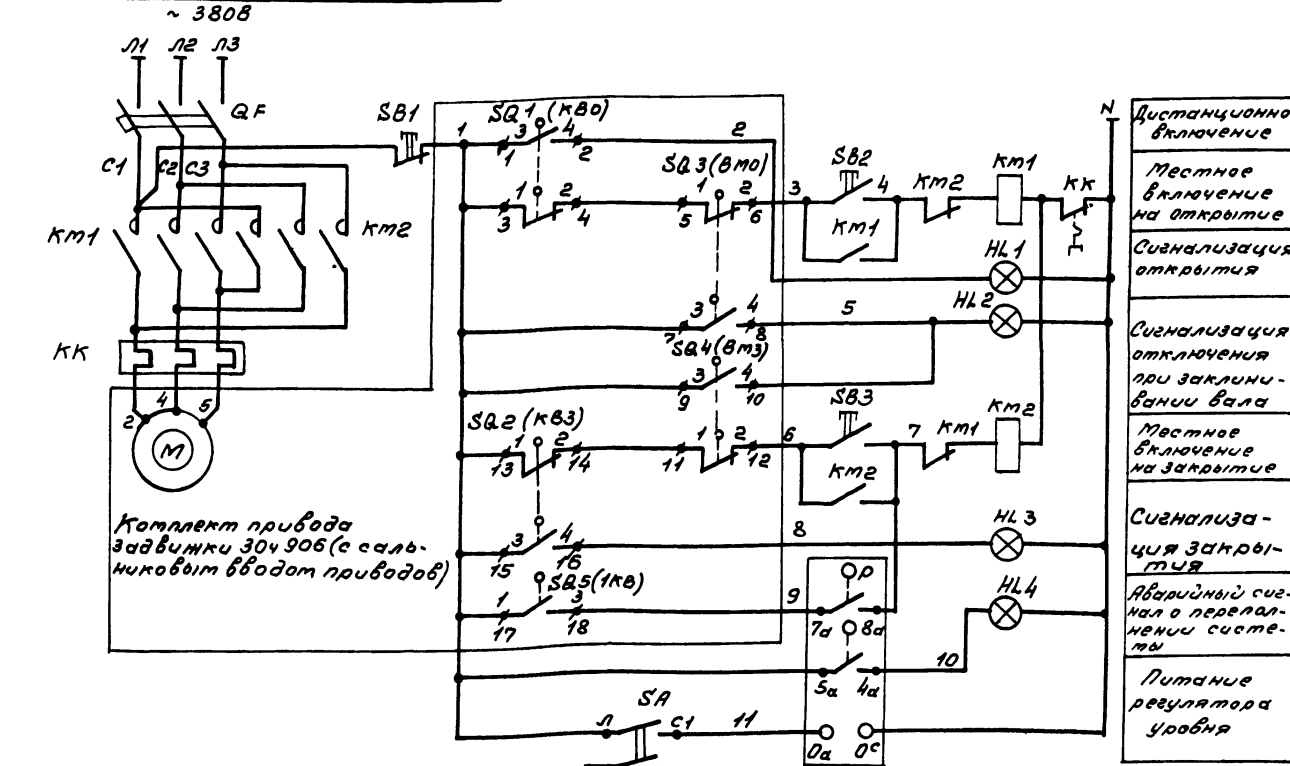 ~ 380В
Л1 Л2 Л3
QF
С1 С2 С3
КМ1
КМ2
КК
2 4 5
М
Комплект привода
задвижки 30ч 906 (с саль-
никовым вводом приводов)
SB1
1
SQ1 (КВО)
3 4
1 2
2
1 2
3 4
SQ3 (ВМО)
1 2
5 6
3
SB2
4
КМ1
КМ2
КМ1
КК
N
HL1
3 4
7 8
5
HL2
SQ4 (ВМЗ)
3 4
9 10
SQ2 (КВЗ)
1 2
13 14
1 2
11 12
6
SB3
7
КМ2
КМ1
КМ2
3 4
15 16
8
HL3
SQ5 (1КВ)
1 3
17 18
9
Р
7а 8а
HL4
5а 4а
10
SA
Л С1
11
0а 0с
Дистанционно
включение
Местное
включение
на открытие
Сигнализация
открытия
Сигнализация
отключения
при заклини-
вании вала
Местное
включение
на закрытие
Сигнализа-
ция закры-
тия
Аварийный сиг-
нал о перепол-
нении систе-
мы
Питание
регулятора
уровня